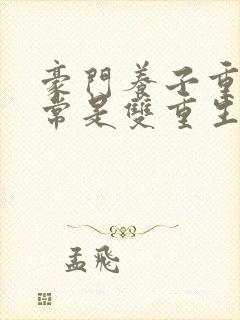 豪門養子重
常是雙重生
孟飛